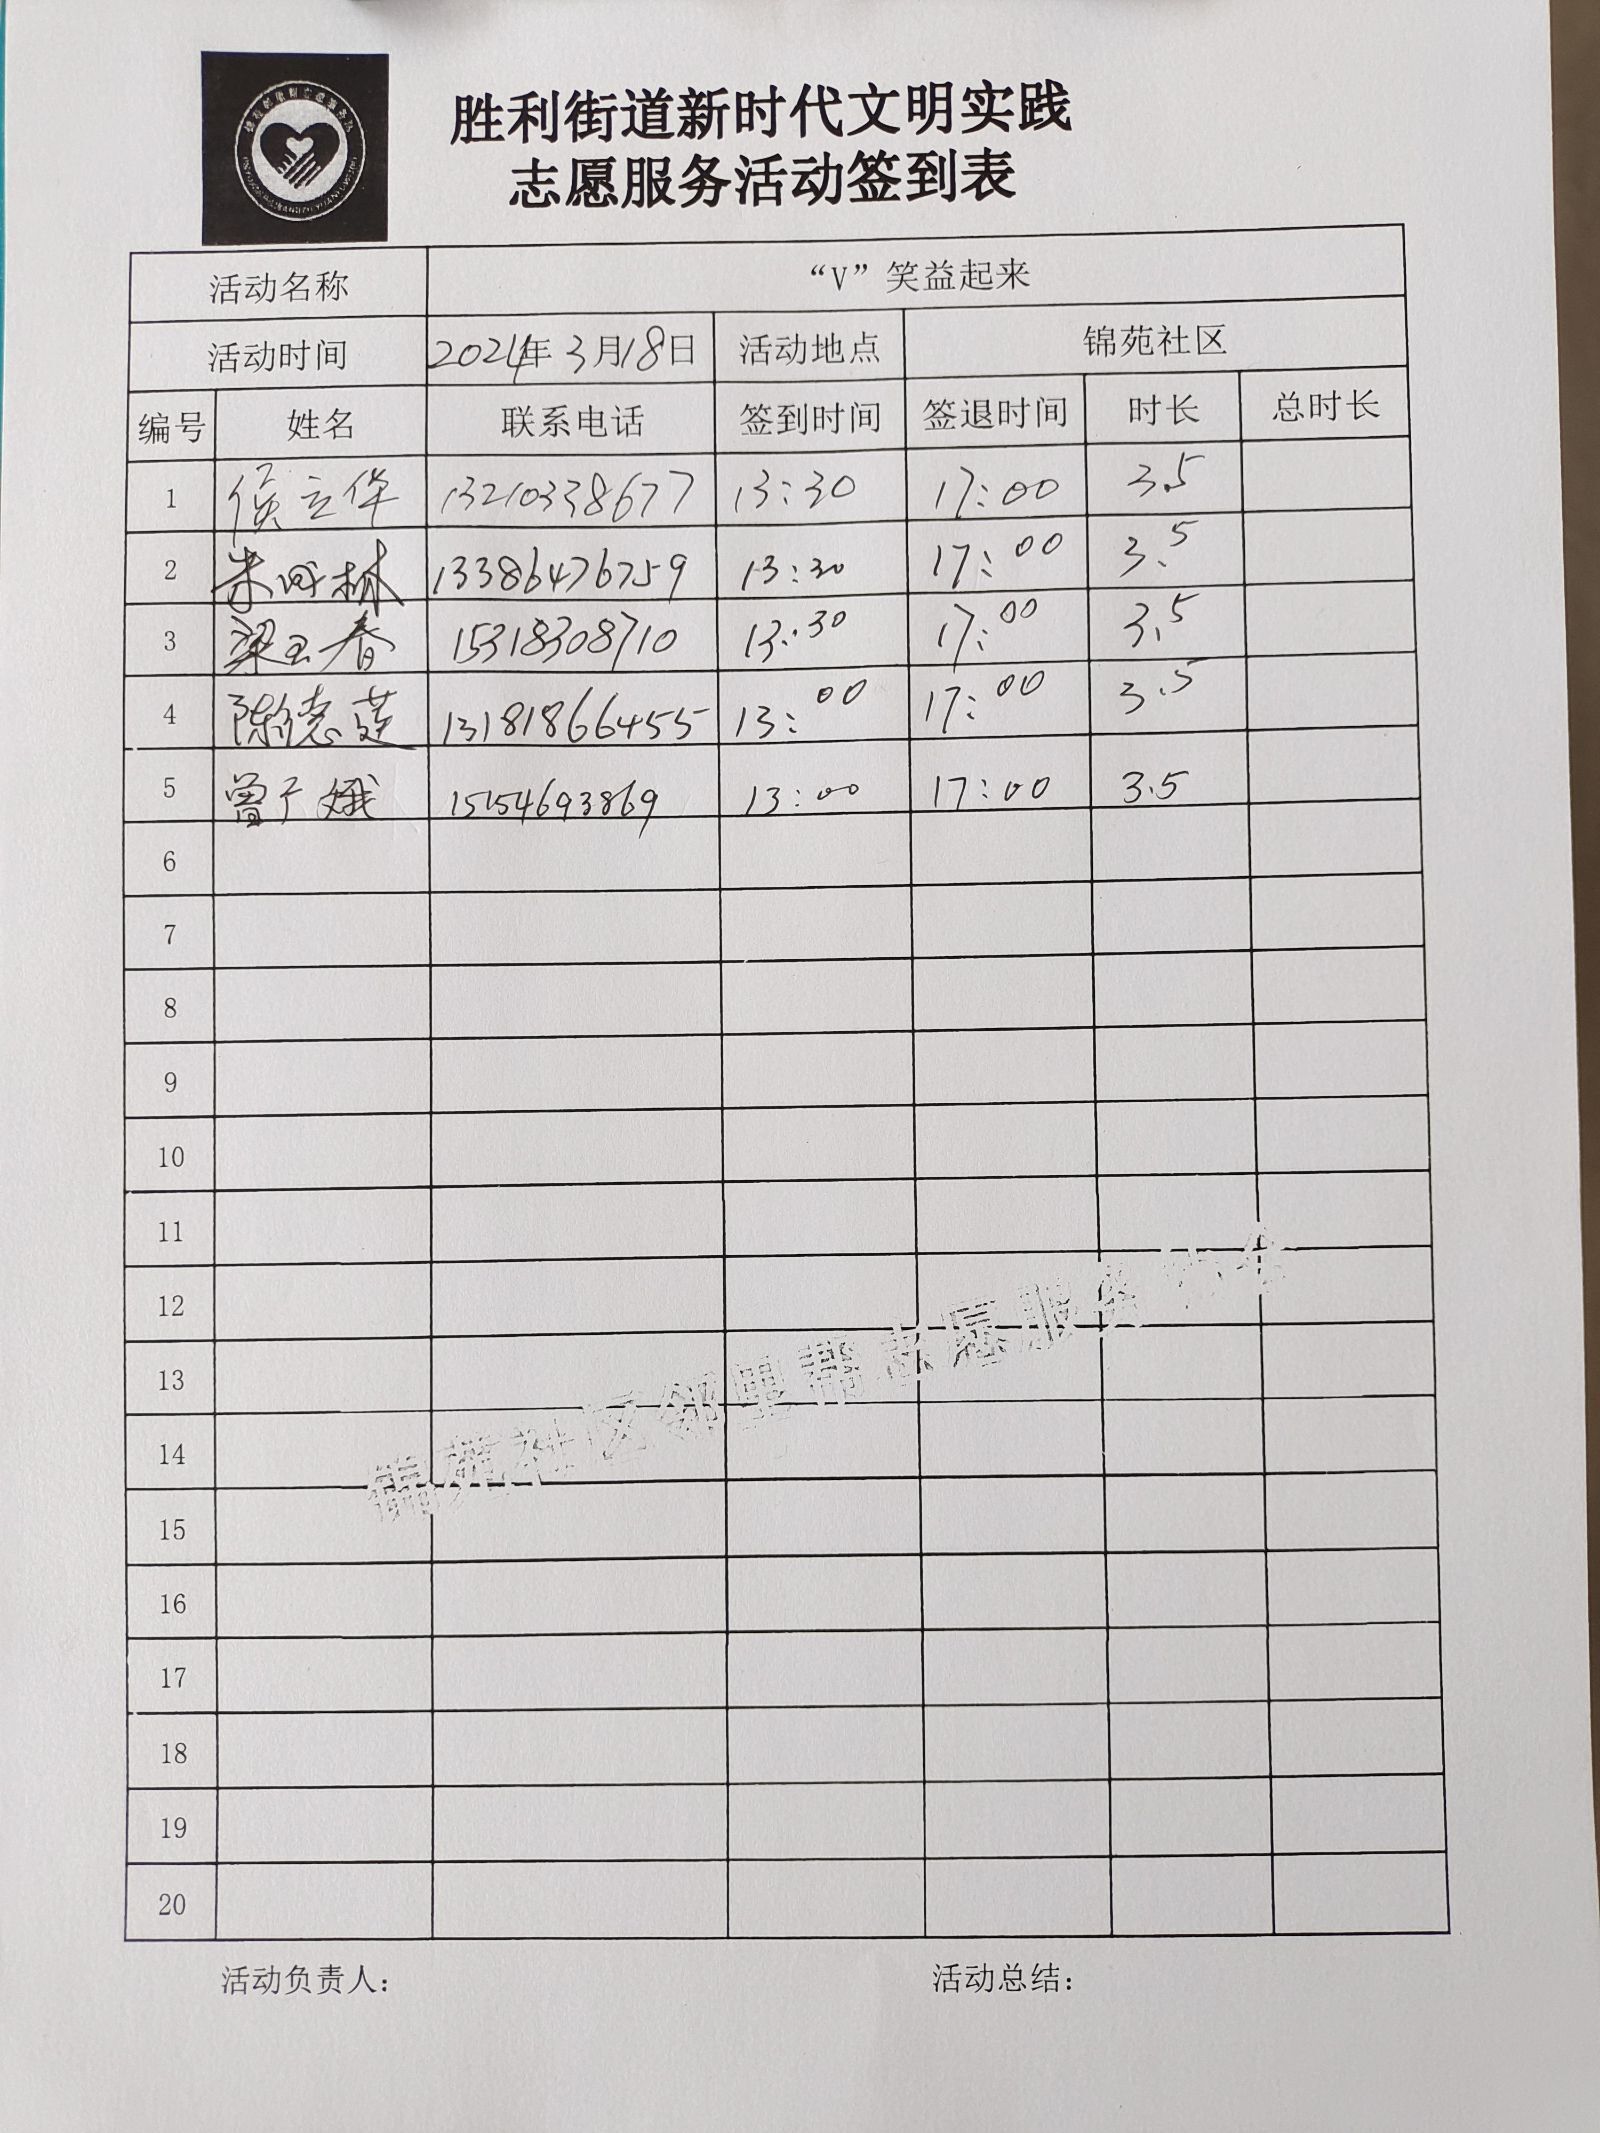 胜利街道新时代文明实践
志愿服务活动签到表
活动名称 “V”笑益起来
活动时间 2024年3月18日 活动地点 锦苑社区
编号 姓名 联系电话 签到时间 签退时间 时长 总时长
1 侯立华 13210338677 13:30 17:00 3.5
2 朱 林 13386476759 13:30 17:00 3.5
3 梁玉春 15318308710 13:30 17:00 3.5
4 陈德莲 13181866455 13:00 17:00 3.5
5 曾广娥 15154693869 13:00 17:00 3.5
6
7
8
9
10
11
12
13
14
15
16
17
18
19
20
锦苑社区邻里帮志愿服务
活动负责人： 活动总结：